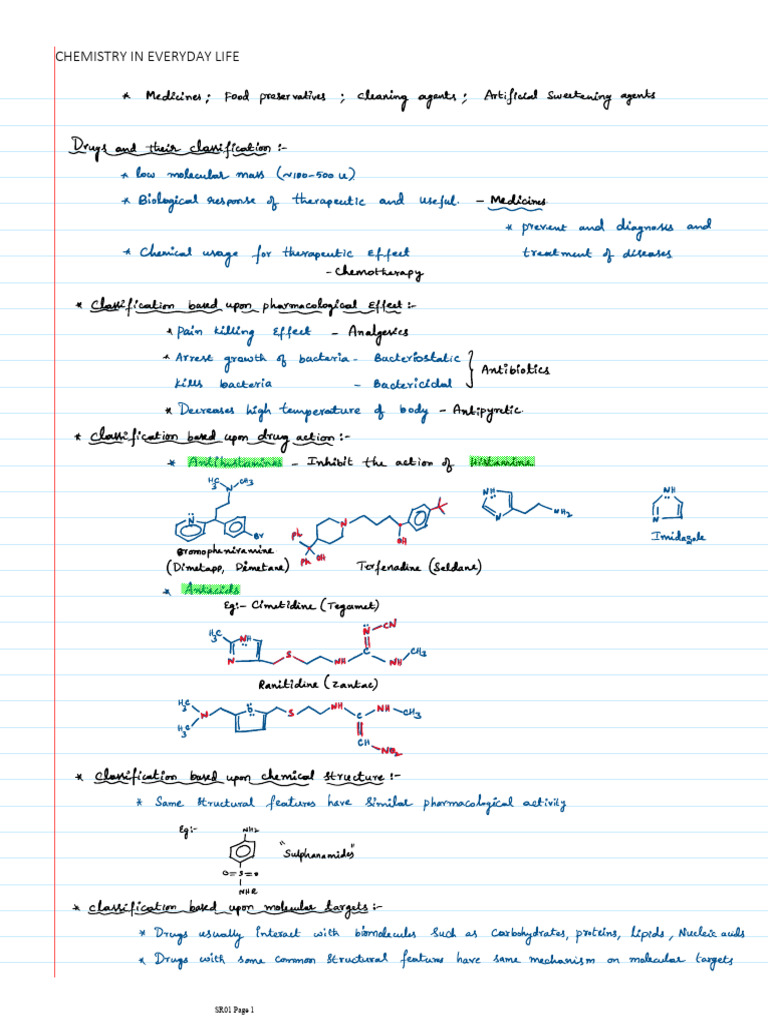 CHEMISTRY IN EVERYDAY LIFE
* Medicines; Food preservatives; cleaning agents; Artificial Sweetening agents
Drugs and their classification :-
* low molecular mass (~100-500 u)
* Biological response of therapeutic and useful. - Medicines
* prevent and diagnosis and
* Chemical usage for therapeutic Effect treatment of diseases
- Chemotherapy
* Classification based upon pharmacological Effect :-
* Pain killing Effect - Analgesics
* Arrest growth of bacteria - Bacteriostatic
} Antibiotics
kills bacteria - Bactericidal
* Decreases high temperature of body - Antipyretic
* Classification based upon drug action :-
* Antihistamines - Inhibit the action of Histamine
H3C CH3 N N Br
Ph Ph OH N OH
NH N NH2
NH N
Imidazole
Bromopheniramine
(Dimetapp, Dimetane) Terfenadine (Seldane)
* Antacids
Eg:- Cimetidine (Tegamet)
N - CN
H3C NH N S NH C NH CH3
Ranitidine (Zantac)
H3C N H3C O S NH C NH CH3
CH NO2
* Classification based upon chemical structure :-
* Same structural features have similar pharmacological activity
Eg:- NH2
"Sulphanamides"
O=S=O
NHR
* Classification based upon molecular targets :-
* Drugs usually interact with biomolecules such as Carbohydrates, proteins, lipids, Nucleic acids
* Drugs with some common structural features have same mechanism on molecular targets
SR01 Page 1